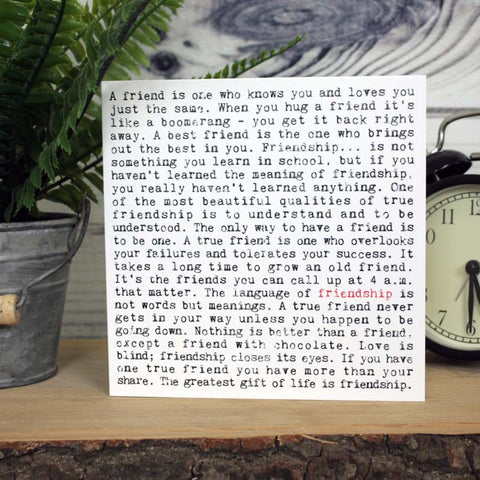 A friend is one who knows you and loves you
just the same. When you hug a friend it's
like a boomerang - you get it back right
away. A best friend is the one who brings
out the best in you. Friendship... is not
something you learn in school, but if you
haven't learned the meaning of friendship,
you really haven't learned anything. One
of the most beautiful qualities of true
friendship is to understand and to be
understood. The only way to have a friend is
to be one. A true friend is one who overlooks
your failures and tolerates your success. It
takes a long time to grow an old friend.
It's the friends you can call up at 4 a.m.
that matter. The language of friendship is
not words but meanings. A true friend never
gets in your way unless you happen to be
going down. Nothing is better than a friend,
except a friend with chocolate. Love is
blind; friendship closes its eyes. If you have
one true friend you have more than your
share. The greatest gift of life is friendship.
12
11
10
9
8
7
6